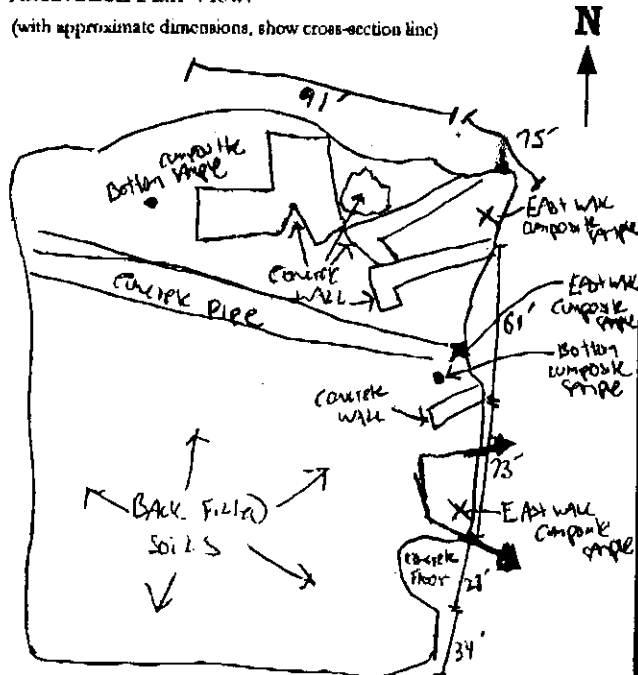 (with approximate dimensions, show cross-section line)
N
91'
75'
composite
Bottom sample
East wall
composite
sample
Concrete
wall
Concrete Pipe
61'
East wall
composite
sample
Bottom
composite
sample
Concrete
wall
73'
Back Filled
Soils
East wall
composite
sample
Concrete
Floor
28'
34'